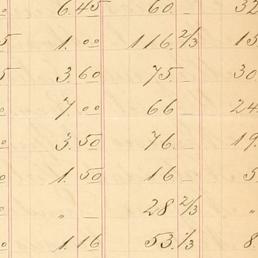 0 6.45 60.— 32
5 1.00 116.2/3 13
5 3.60 75.— 30
0 7.00 66 — 24.
0 3.50 76.— 19.
0 1.50 16.— 5
0 " — 28 2/3 "
0 1.16 53.1/3 8.